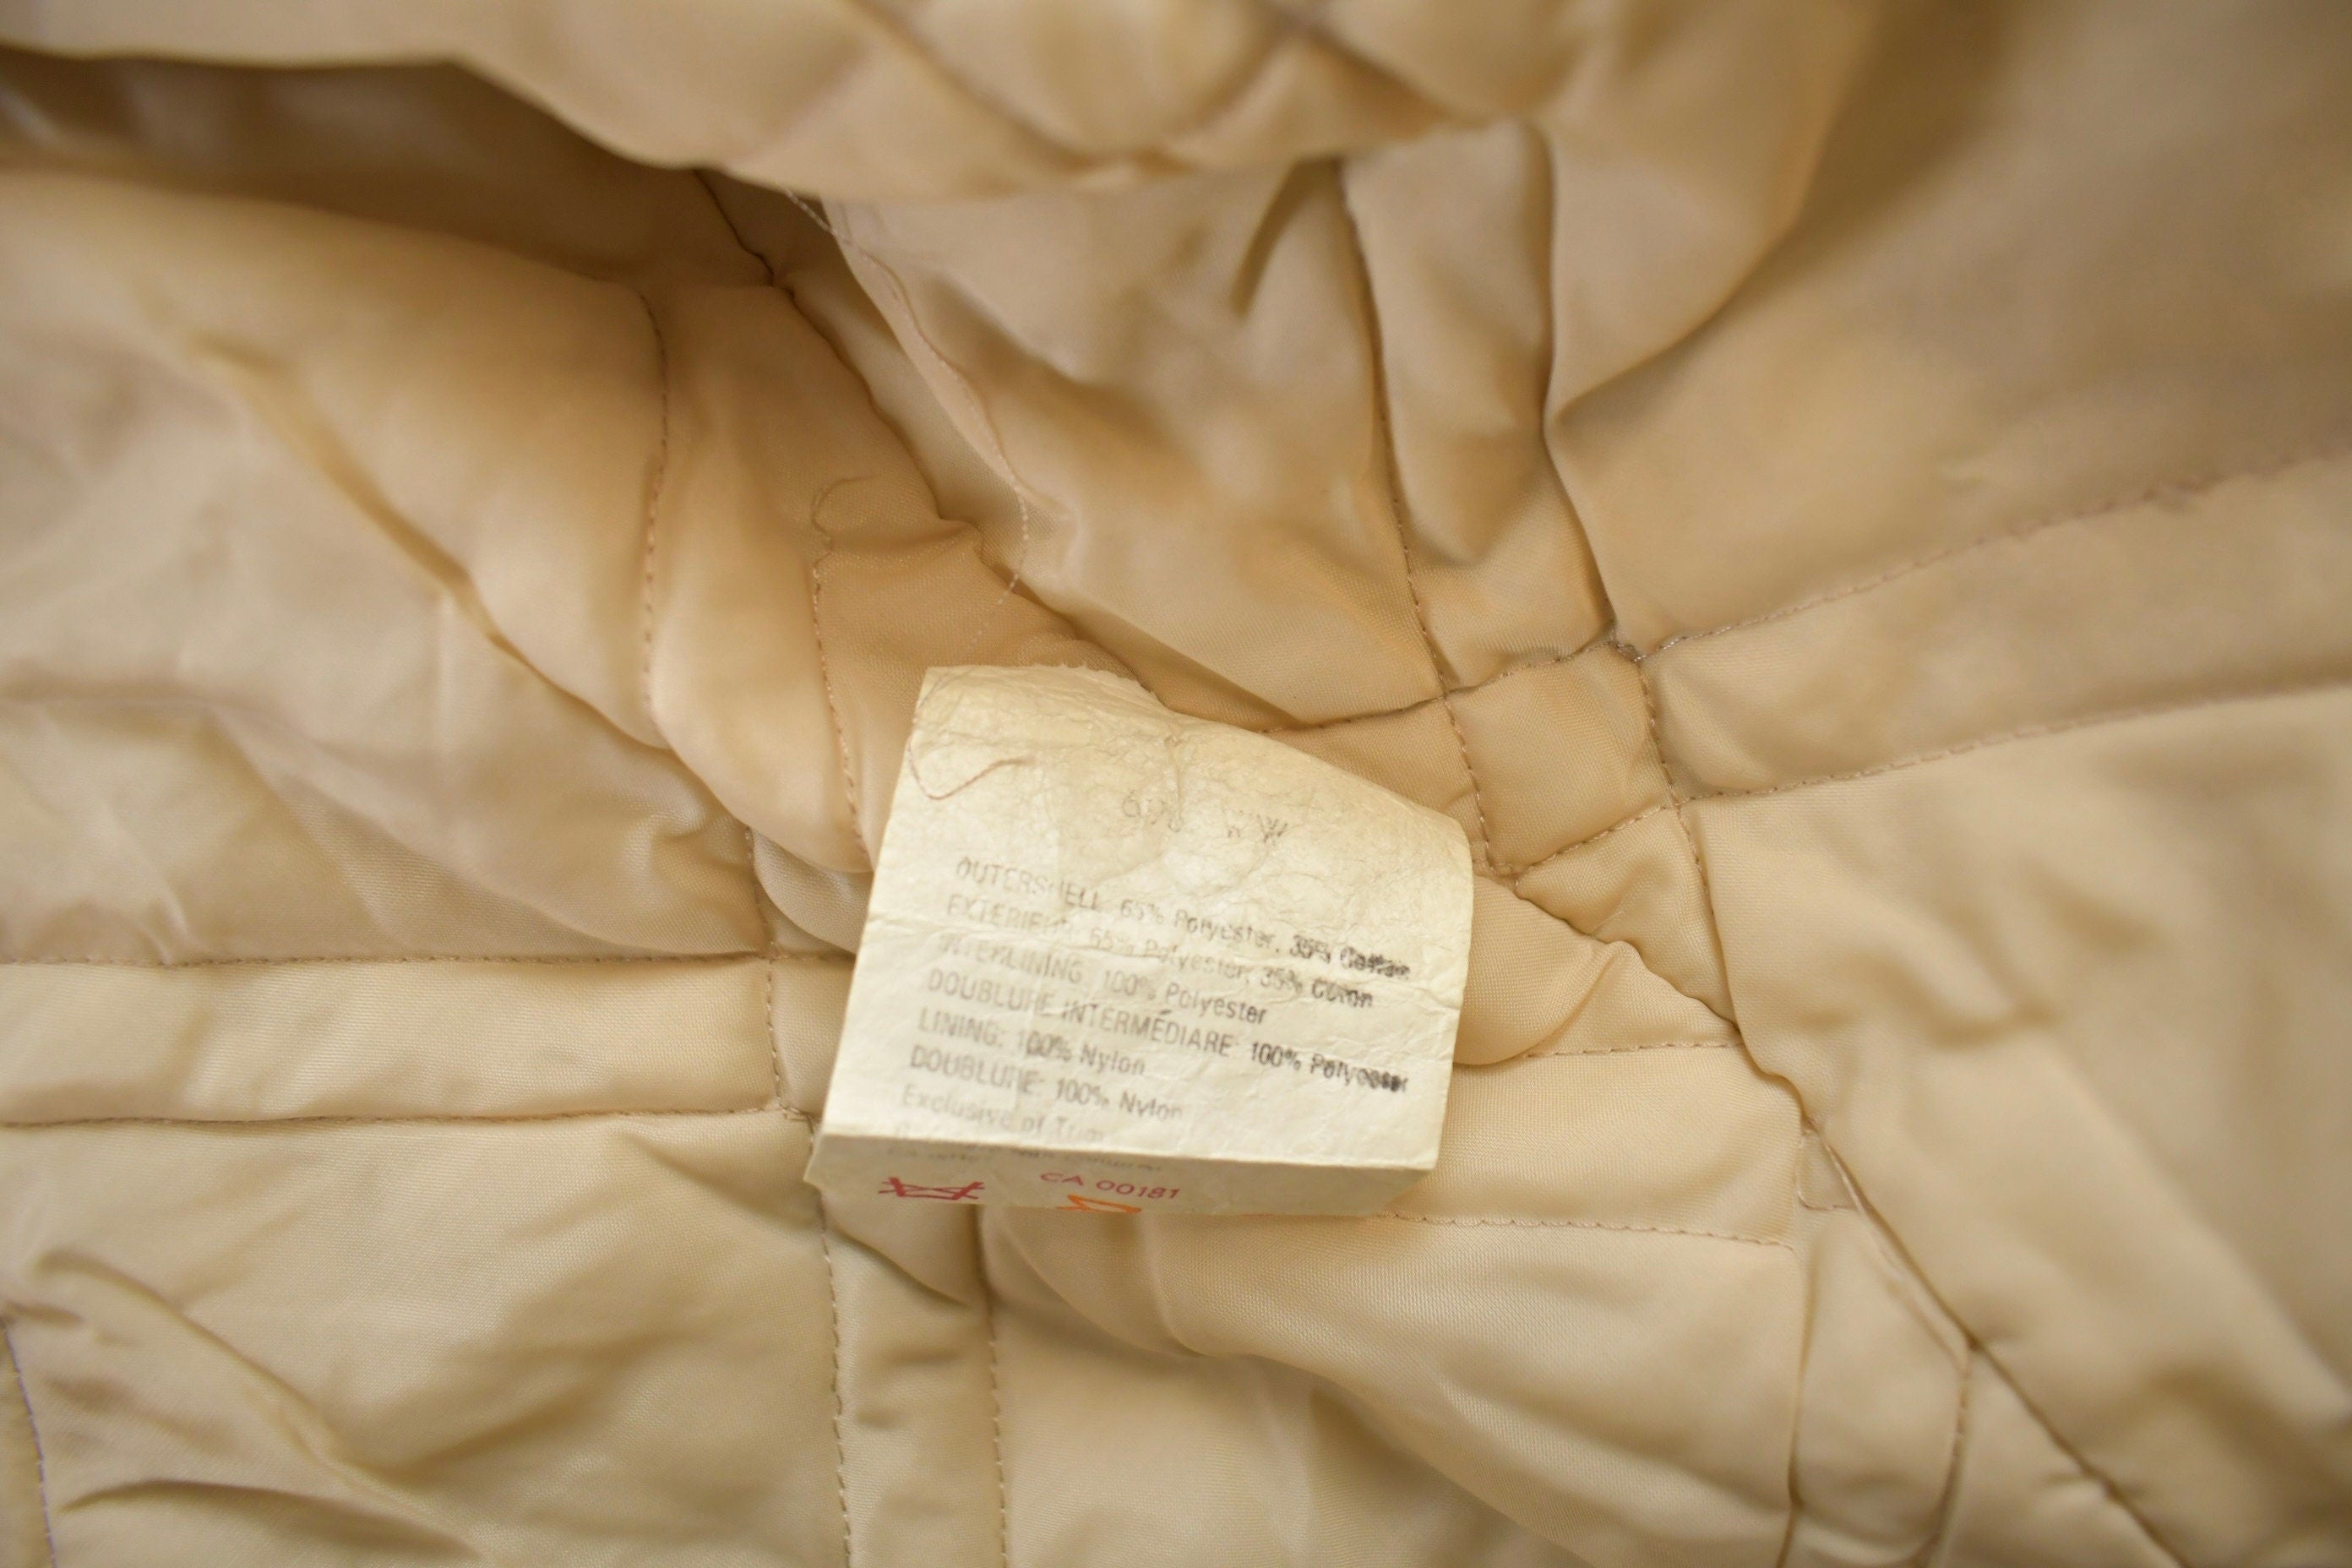 OUTERSHELL: 65% Polyester, 35% Cotton
EXTERIEUR: 65% Polyester, 35% Coton
INTERLINING: 100% Polyester
DOUBLURE INTERMÉDIARE: 100% Polyester
LINING: 100% Nylon
DOUBLURE: 100% Nylon
Exclusive of Trim
CA 00181